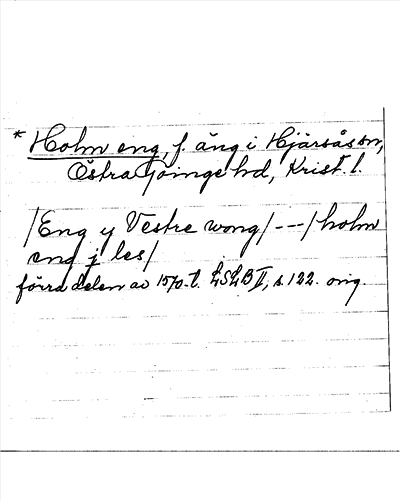 * Holm eng, f. äng i Hjärsås sn,
Östra Göinge hd, Krist. l.
/Eng y Vestre wong/---/holm
eng j les/
förra delen av 1570-t. LSLB II, s. 122. orig.